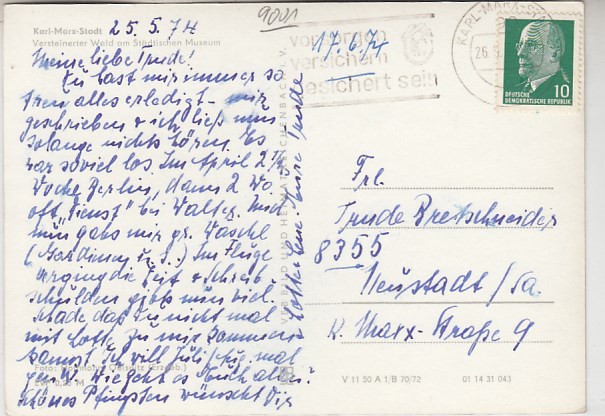 Karl-Marx-Stadt
Versteinerter Wald am Städtischen Museum
25. 5. 74
9001
Meine liebe Trude!
Du hast mir immer so
treu alles erledigt – mir
geschrieben & ich ließ nun
solange nichts hören. Es
war soviel los. Im April 2 ½
Woche Berlin, dann 2 Wo.
oft "Dienst" bei Walter. Und
nun gabs mir gr. Wäsche
(Gardinen u. s.) Im Fluge
verging die Zeit & Schreib-
schulden gibts nun viel.
Schade das Du nicht mal
mit Lotte zu mir kommen
kannst. Ich will Juli/ mal
Wie geht es Euch allen?
schönes Pfingsten wünscht Dir
Foto:
EVP 0,20 M
vorsorgen
versichern
gesichert sein
17. 6. 74
KARL-MARX-ST
26.5
DEUTSCHE
DEMOKRATISCHE REPUBLIK
10
Frl.
Trude Bretschneider
8355
Neustadt / Sa.
K. Marx-Straße 9
V 11 50 A 1/B 70/72 01 14 31 043